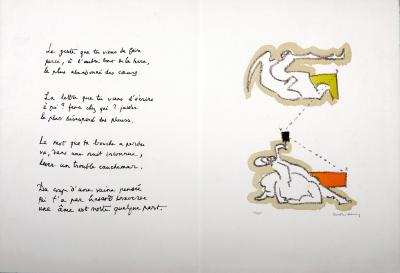 Le geste que tu viens de faire
perce, à l'autre bout de la terre,
le plus abandonné des cœurs

La lettre que tu viens d'écrire
à qui? fera chez qui? jaillir
le plus désespéré des pleurs.

Le mot que ta bouche a perdu
va, dans une nuit inconnue,
lever un trouble cauchemar.

Du coup d'une vaine pensée
qui t'a par hasard traversée
une âme est morte quelque part.